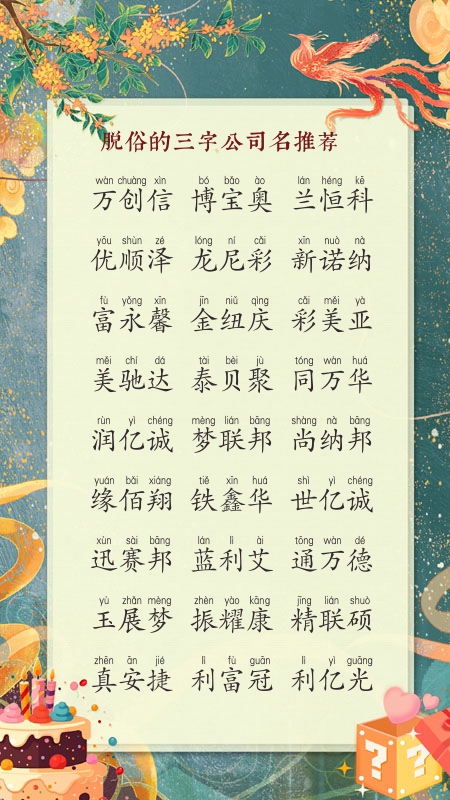 脱俗的三字公司名推荐
wàn chuàng xìn bó bǎo ào lán héng kē
万创信 博宝奥 兰恒科
yōu shùn zé lóng ní cǎi xīn nuò nà
优顺泽 龙尼彩 新诺纳
fù yǒng xīn jīn niǔ qìng cǎi měi yà
富永馨 金纽庆 彩美亚
měi chí dá tài bèi jù tóng wàn huá
美驰达 泰贝聚 同万华
rùn yì chéng mèng lián bāng shàng nà bāng
润亿诚 梦联邦 尚纳邦
yuán bǎi xiáng tiě xīn huá shì yì chéng
缘佰翔 铁鑫华 世亿诚
xùn sài bāng lán lì ài tōng wàn dé
迅赛邦 蓝利艾 通万德
yù zhǎn mèng zhèn yào kāng jīng lián shuò
玉展梦 振耀康 精联硕
zhēn ān jié lì fù guān lì yì guāng
真安捷 利富冠 利亿光
? ?